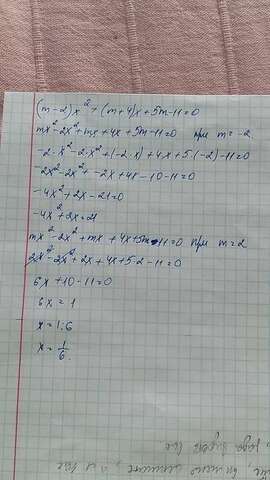 (m-2)x²+(m+4)x+5m-11=0
mx²-2x²+mx+4x+5m-11=0 при m=-2
-2·x²-2·x²+(-2·x)+4x+5·(-2)-11=0
-2x²-2x²+-2x+4x-10-11=0
-4x²+2x-21=0
-4x²+2x=21
mx²-2x²+mx+4x+5m-11=0 при m=2
2x²-2x²+2x+4x+5·2-11=0
6x+10-11=0
6x=1
x=1:6
x=1/6